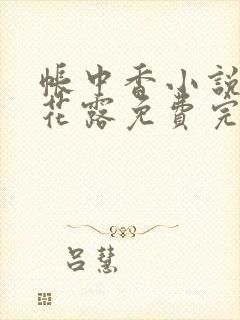 帳中香小說
花露免費完
呂慧